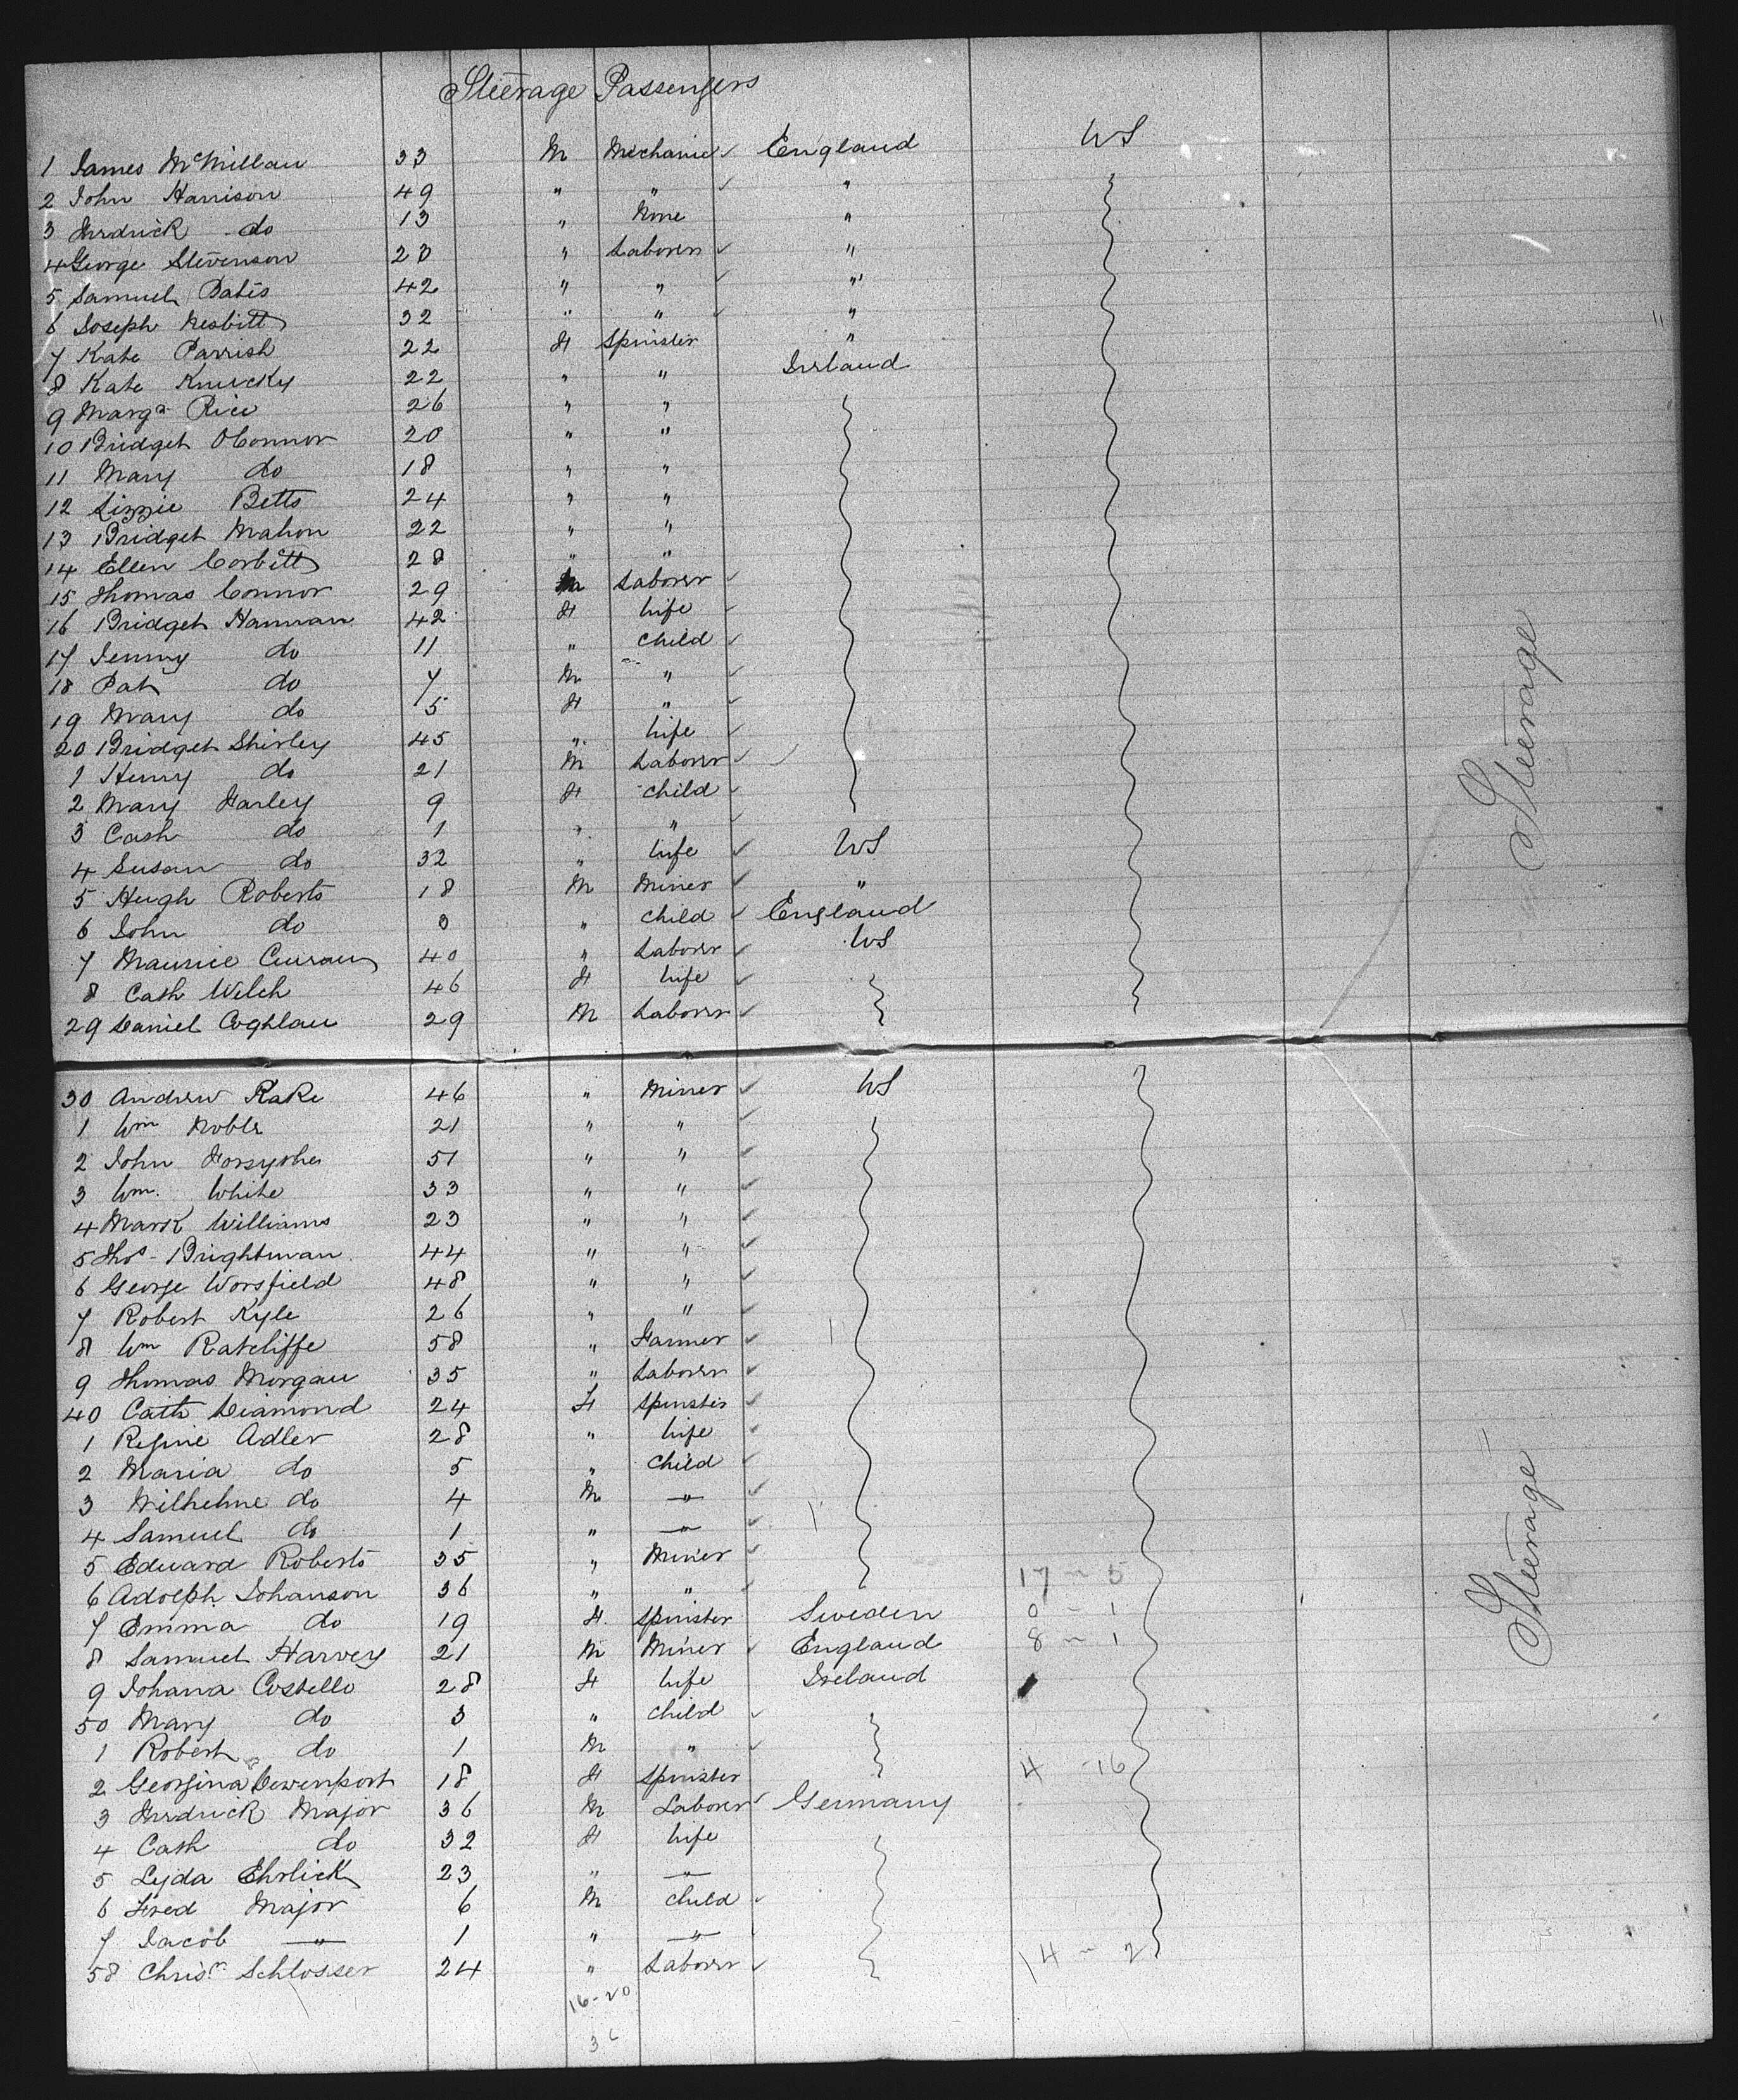 Steerage Passengers
1 James McMillan 33 M Mechanic England US
2 John Harrison 49 " " "
3 Fredrick do 13 " None "
4 George Stevenson 23 " Laborer "
5 Samuel Bates 42 " " "
6 Joseph Nesbitt 32 " " "
7 Kate Parrish 22 F Spinster "
8 Kate 22 " " Ireland
9 Marga Rice 26 " "
10 Bridget OConnor 20 " "
11 Mary do 18 " "
12 Lizzie Betts 24 " "
13 Bridget Mahon 22 " "
14 Ellen Corbitt 28 " "
15 Thomas Connor 29 M Laborer
16 Bridget Hannan 42 F Wife
17 Jenny do 11 " Child
18 Pat do 7 M "
19 Mary do 5 F "
20 Bridget Shirley 45 " Wife
1 Henry do 21 M Laborer
2 Mary Farley 9 F Child
3 Cath do 1 " "
4 Susan do 32 " Wife US
5 Hugh Roberts 18 M Miner "
6 John do " Child England
7 Maurice Curran 40 " Laborer US
8 Cath Welch 46 F Wife
29 Daniel Coghlan 29 M Laborer
30 Andrew Rake 46 " Miner US
1 Wm Noble 21 " "
2 John Forsythe 51 " "
3 Wm. White 33 " "
4 Mark Williams 23 " "
5 Thos Brightman 44 " "
6 George Worsfield 48 " "
7 Robert Kyle 26 " "
8 Wm Ratcliffe 58 " Farmer
9 Thomas Morgan 35 " Laborer
40 Cath Diamond 24 F Spinster
1 Regine Adler 28 " Wife
2 Maria do 5 " Child
3 Wilhelme do 4 M "
4 Samuel do 1 " "
5 Edward Roberts 35 " Miner
6 Adolph Johanson 36 " " 17 - 5
7 Emma do 19 F. Spinster Sweden 0 - 1
8 Samuel Harvey 21 M Miner England 8 - 1
9 Johana Costello 28 F Wife Ireland
50 Mary do 3 " Child "
1 Robert do 1 M "
2 Georgina Devenport 18 F Spinster 4 - 16
3 Fredrick Major 36 M Laborer Germany
4 Cath do 32 F Wife
5 Lyda Ehrlick 23 " "
6 Fred Major 6 M Child
7 Jacob " 1 " "
58 Chrisr Schlosser 24 " Laborer 14 - 2
16-20
Steerage
Steerage